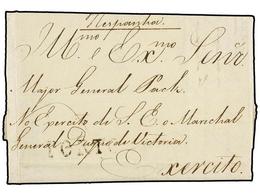 Hespanha
Il.mo e Ex.mo Senr.
Major General Pack
No Exercito de S. E. o Marichal
General Duque de Victoria.
Exercito.